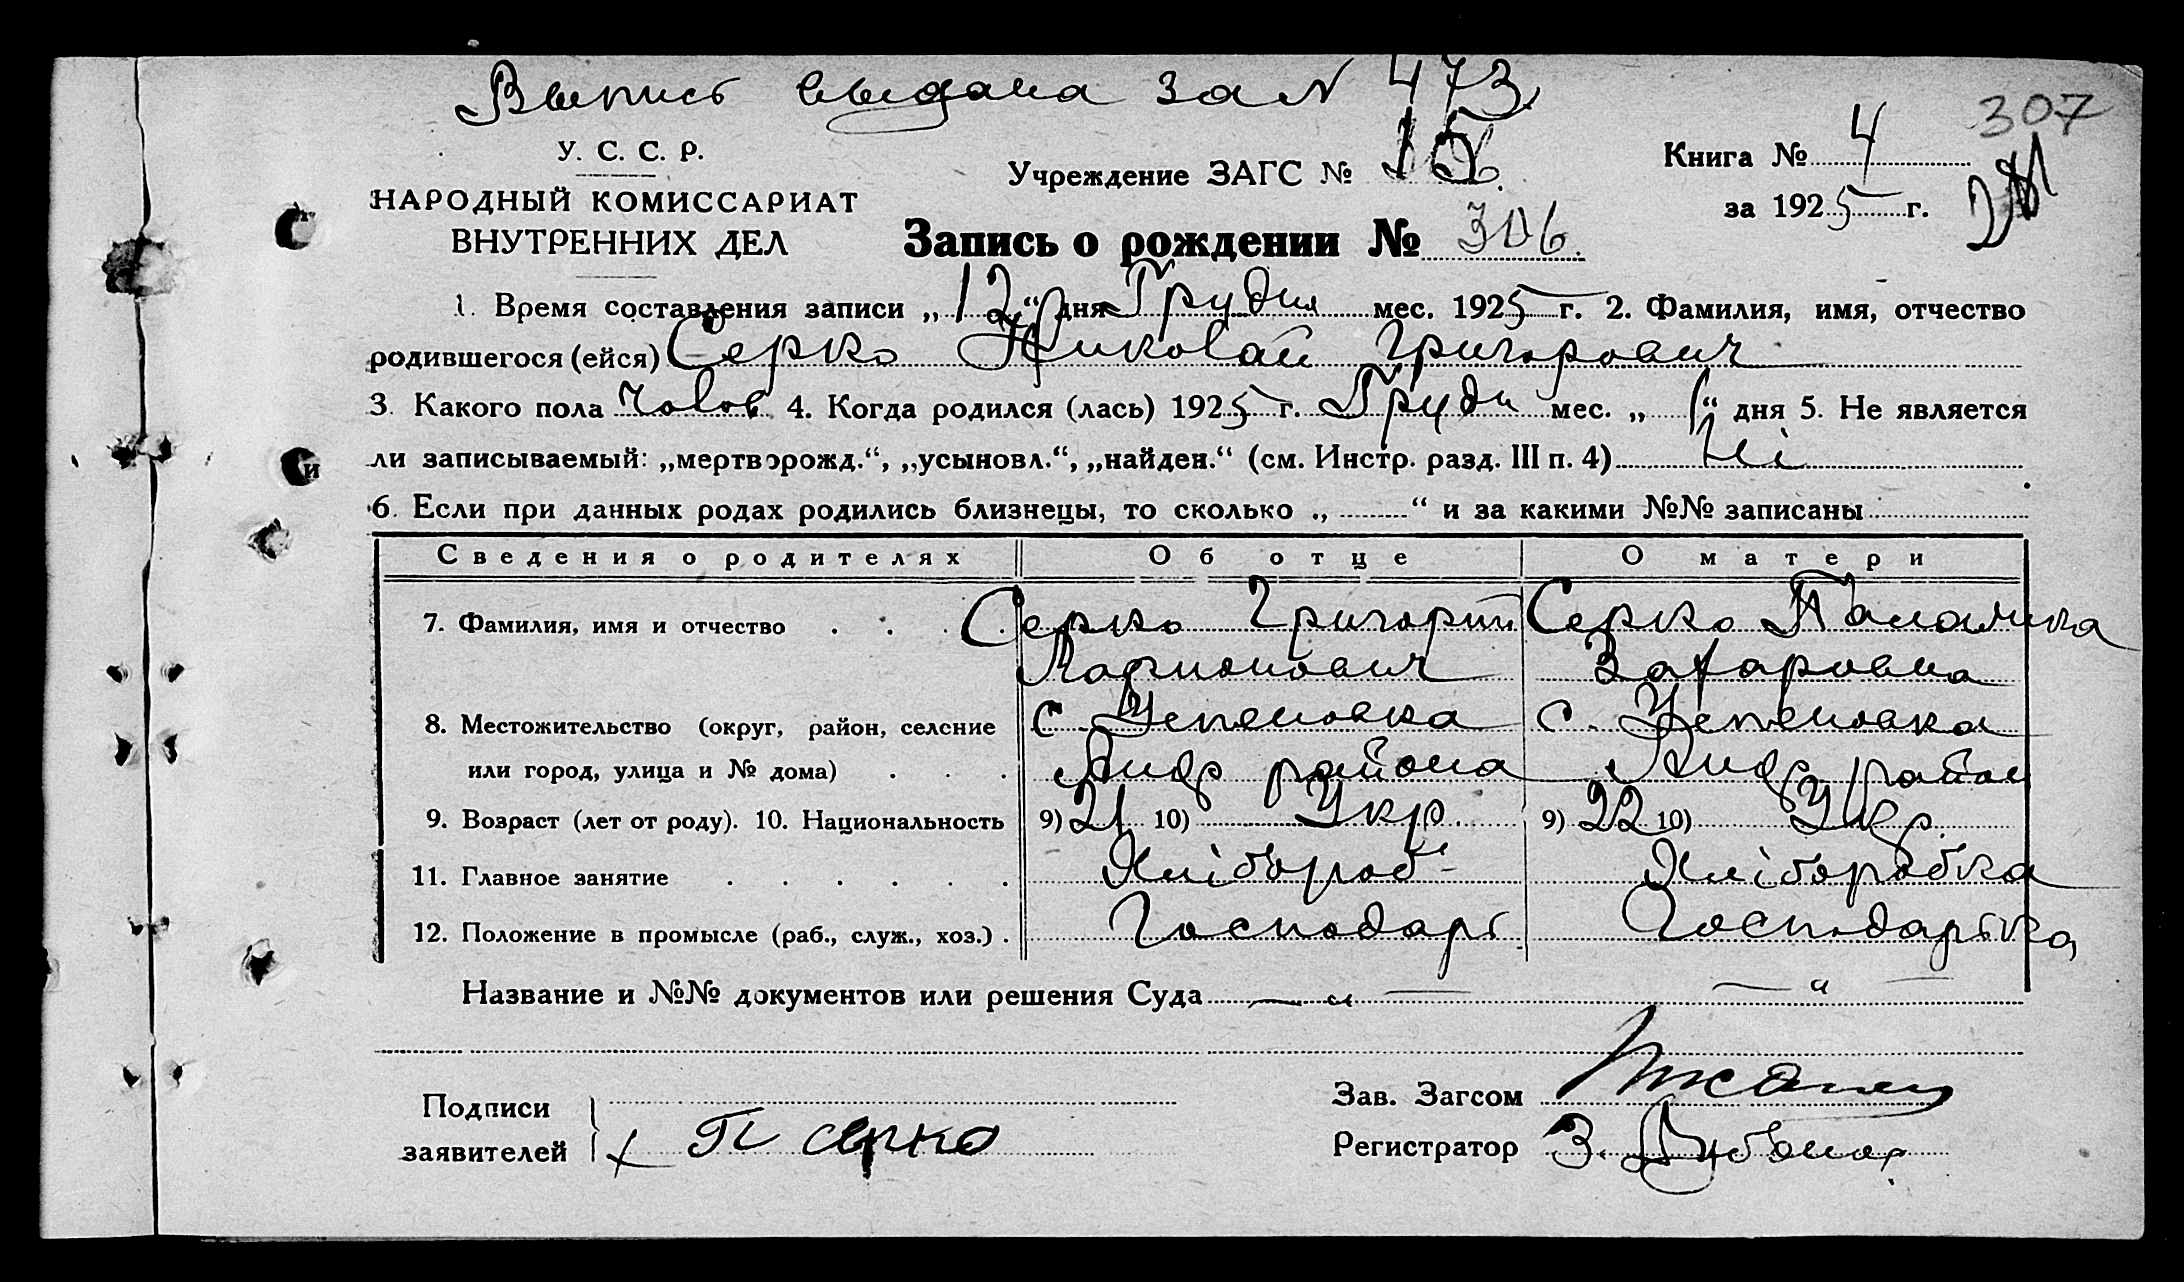 Выпись выдана за № 473
307
У. С. С. Р.
НАРОДНЫЙ КОМИССАРИАТ
ВНУТРЕННИХ ДЕЛ
Учреждение ЗАГС №
Книга № 4
за 1925 г.
Запись о рождении № 306.
1. Время составления записи „12“ дня Грудня мес. 1925 г. 2. Фамилия, имя, отчество
родившегося (ейся) Серко Николай Григорович
3. Какого пола Чолов. 4. Когда родился (лась) 1925 г. Грудн мес. „1“ дня 5. Не является
ли записываемый: „мертворожд.“, „усыновл.“, „найден.“ (см. Инстр. разд. III п. 4) Ні
6. Если при данных родах родились близнецы, то сколько „ “ и за какими №№ записаны
Сведения о родителях Об отце О матери
7. Фамилия, имя и отчество Серко Григорий Серко
Ларионович Захаровна
8. Местожительство (округ, район, селение С. С.
или город, улица и № дома) района район
9. Возраст (лет от роду). 10. Национальность 9) 21 10) Укр. 9) 22 10) Укр.
11. Главное занятие Хлібороб Хліборобка
12. Положение в промысле (раб., служ., хоз.) Господарь Господарька
Название и №№ документов или решения Суда — „ — — „ —
Зав. Загсом
Подписи
заявителей П Серко
Регистратор З.